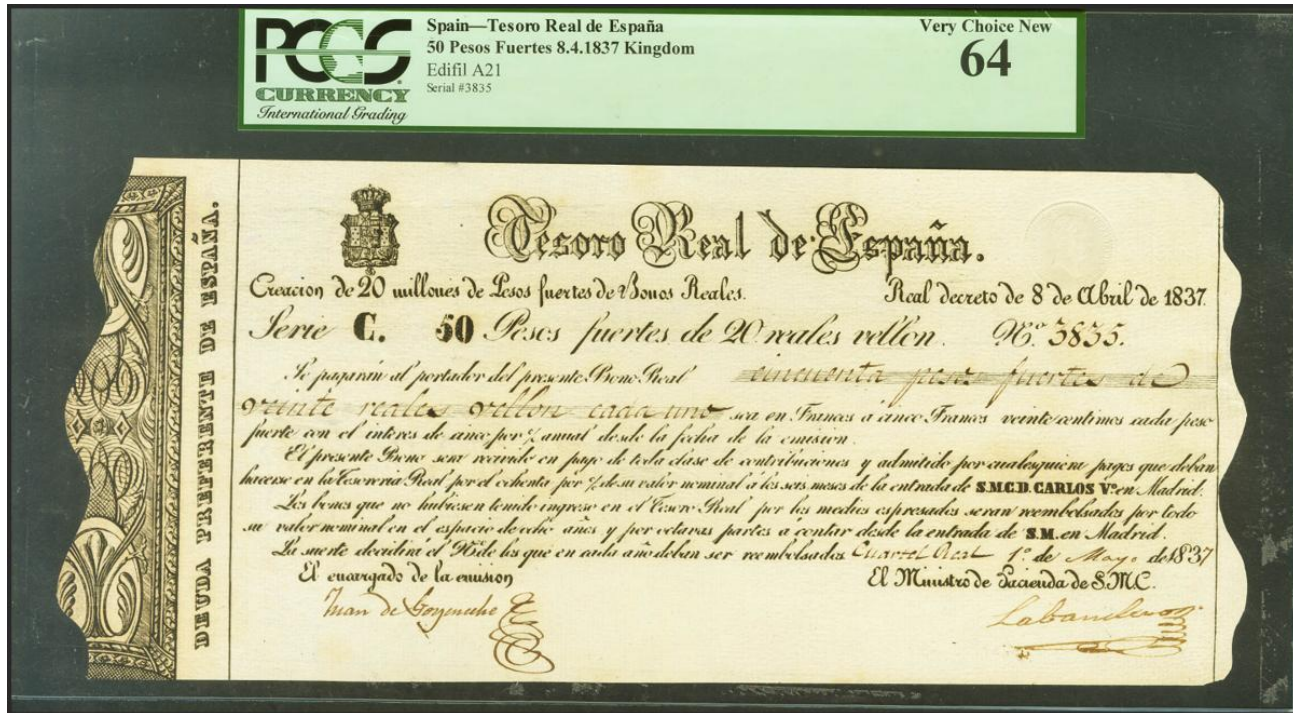 PCGS
CURRENCY
International Grading
Spain—Tesoro Real de España
50 Pesos Fuertes 8.4.1837 Kingdom
Edifil A21
Serial #3835
Very Choice New
64
DEUDA PREFERENTE DE ESPAÑA.
Tesoro Real de España.
Creacion de 20 millones de Pesos fuertes de Bonos Reales. Real decreto de 8 de Abril de 1837.
Serie C. 50 Pesos fuertes de 20 reales vellon. Nº. 3835.
Se pagarán al portador del presente Bono Real cincuenta pesos fuertes de
veinte reales vellon cada uno sea en Francos á cinco Francos veinte centimos cada peso
fuerte con el interes de cinco por % anual desde la fecha de la emision.
El presente Bono sera recivido en pago de toda clase de contribuciones y admitido por cualesquiera pagos que deban
hacerse en la Tesoreria Real por el ochenta por % de su valor nominal á los seis meses de la entrada de S.M.C.D. CARLOS Vº en Madrid.
Los bonos que no hubiesen tenido ingreso en el Tesoro Real por los medios espresados seran reembolsados por todo
su valor nominal en el espacio de ocho años y por octavas partes á contar desde la entrada de S.M. en Madrid.
La suerte decidirá el Nº de los que en cada año deban ser reembolsados Cuartel Real 1º de Mayo de 1837
El encargado de la emision El Ministro de Hacienda de S.M.C.
Juan de Goyeneche Labandero